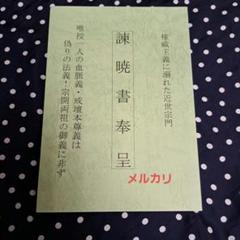 権威主義に溺れた近世宗門
諫暁書奉呈
唯授一人の血脈義・戒壇本尊義は
偽りの法義・宗開両祖の御義に非ず
メルカリ